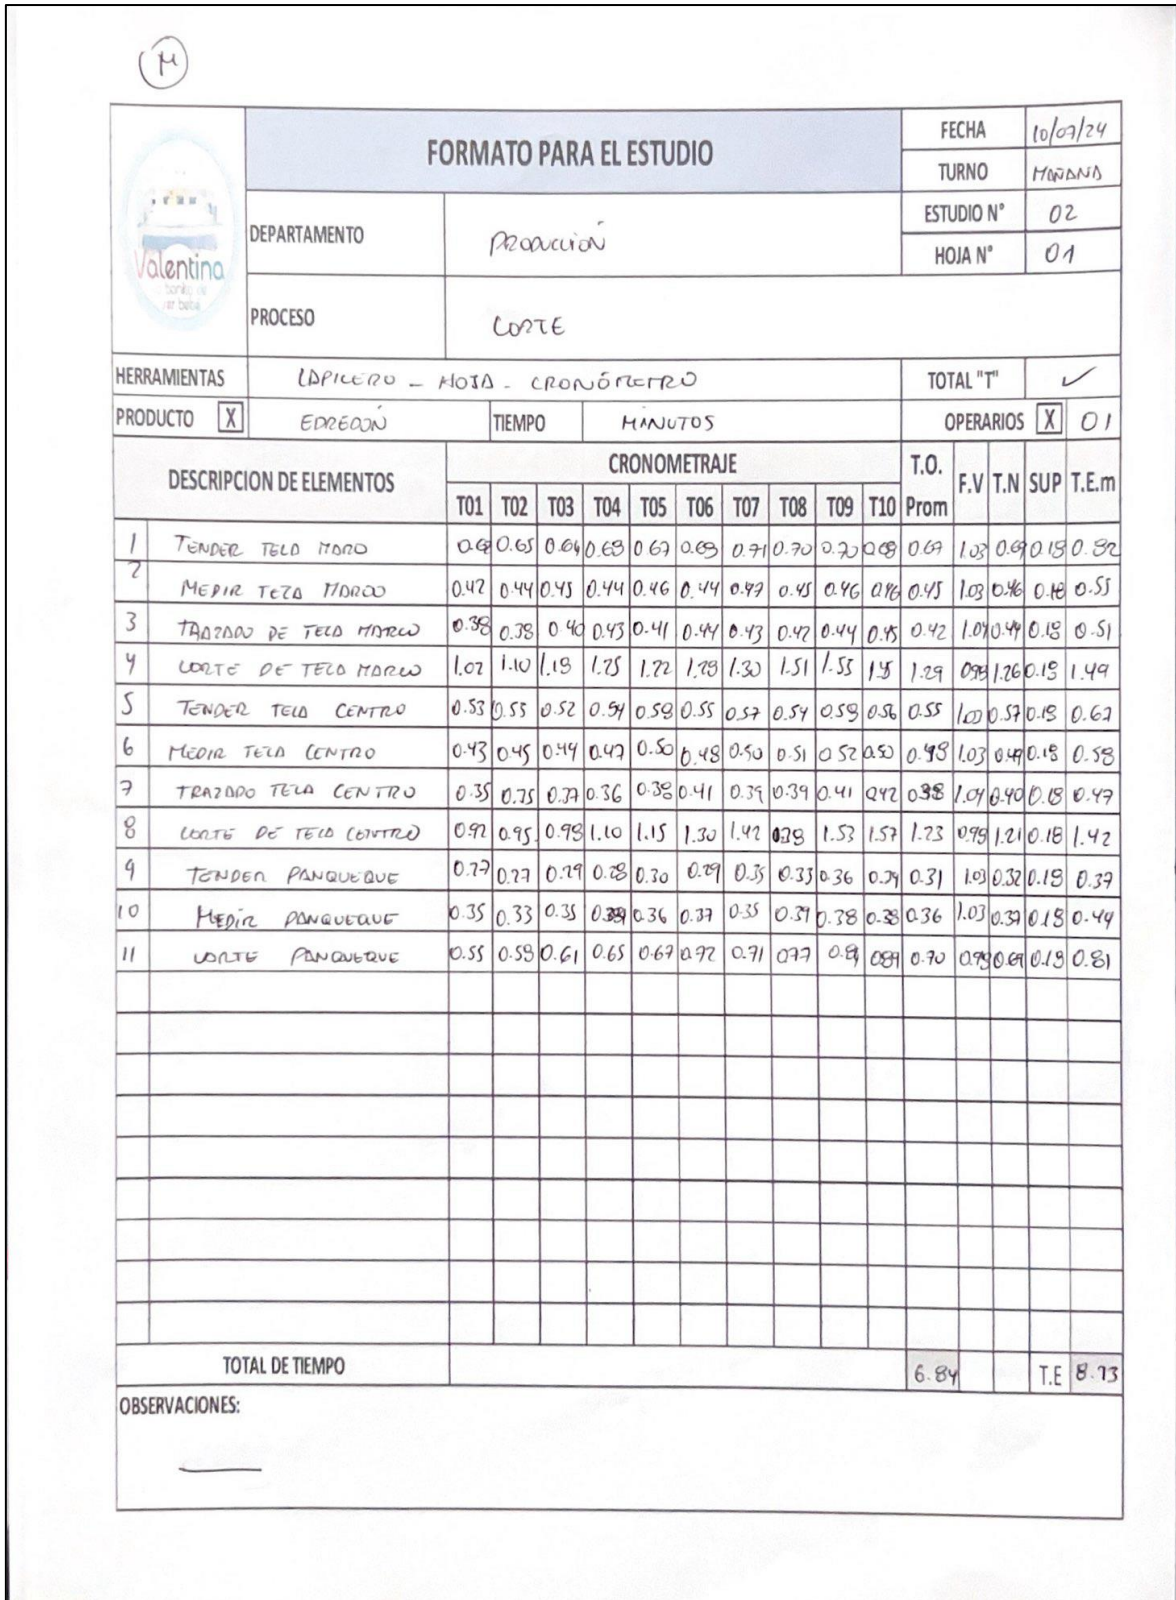 M
Valentina
bonito de
ser bebé
FORMATO PARA EL ESTUDIO
FECHA 10/07/24
TURNO MAÑANA
DEPARTAMENTO PRODUCCIÓN
ESTUDIO N° 02
HOJA N° 01
PROCESO CORTE
HERRAMIENTAS LAPICERO - HOJA - CRONÓMETRO TOTAL "T" ✓
PRODUCTO X EDREDÓN TIEMPO MINUTOS OPERARIOS X 01
DESCRIPCION DE ELEMENTOS CRONOMETRAJE T.O. Prom F.V T.N SUP T.E.m
T01 T02 T03 T04 T05 T06 T07 T08 T09 T10
1 TENDER TELA 0.65 0.64 0.68 0.67 0.68 0.71 0.70 0.70 0.68 0.67 1.03 0.69 0.18 0.82
2 MEDIR TELA MARCO 0.42 0.44 0.45 0.44 0.46 0.44 0.47 0.45 0.46 0.46 0.45 1.03 0.46 0.18 0.55
3 TRAZADO DE TELA MARCO 0.38 0.38 0.40 0.43 0.41 0.44 0.43 0.42 0.44 0.45 0.42 1.04 0.44 0.18 0.51
4 CORTE DE TELA MARCO 1.02 1.10 1.18 1.25 1.22 1.28 1.30 1.51 1.55 1.29 0.98 1.26 0.18 1.49
5 TENDER TELA CENTRO 0.53 0.55 0.52 0.54 0.58 0.55 0.57 0.54 0.58 0.56 0.55 1.03 0.57 0.18 0.67
6 MEDIR TELA CENTRO 0.43 0.45 0.44 0.47 0.50 0.48 0.50 0.51 0.52 0.50 0.48 1.03 0.49 0.18 0.58
7 TRAZADO TELA CENTRO 0.35 0.35 0.37 0.36 0.38 0.41 0.39 0.39 0.41 0.42 0.38 1.04 0.40 0.18 0.47
8 CORTE DE TELA CENTRO 0.92 0.95 0.98 1.10 1.15 1.30 1.42 1.53 1.57 1.23 0.98 1.21 0.18 1.42
9 TENDER PANQUEQUE 0.27 0.27 0.29 0.28 0.30 0.29 0.35 0.33 0.36 0.34 0.31 1.03 0.32 0.18 0.37
10 MEDIR PANQUEQUE 0.35 0.33 0.35 0.36 0.37 0.35 0.39 0.38 0.38 0.36 1.03 0.37 0.18 0.44
11 CORTE PANQUEQUE 0.55 0.58 0.61 0.65 0.67 0.72 0.71 0.77 0.89 0.70 0.98 0.69 0.18 0.81
TOTAL DE TIEMPO 6.84 T.E 8.13
OBSERVACIONES: